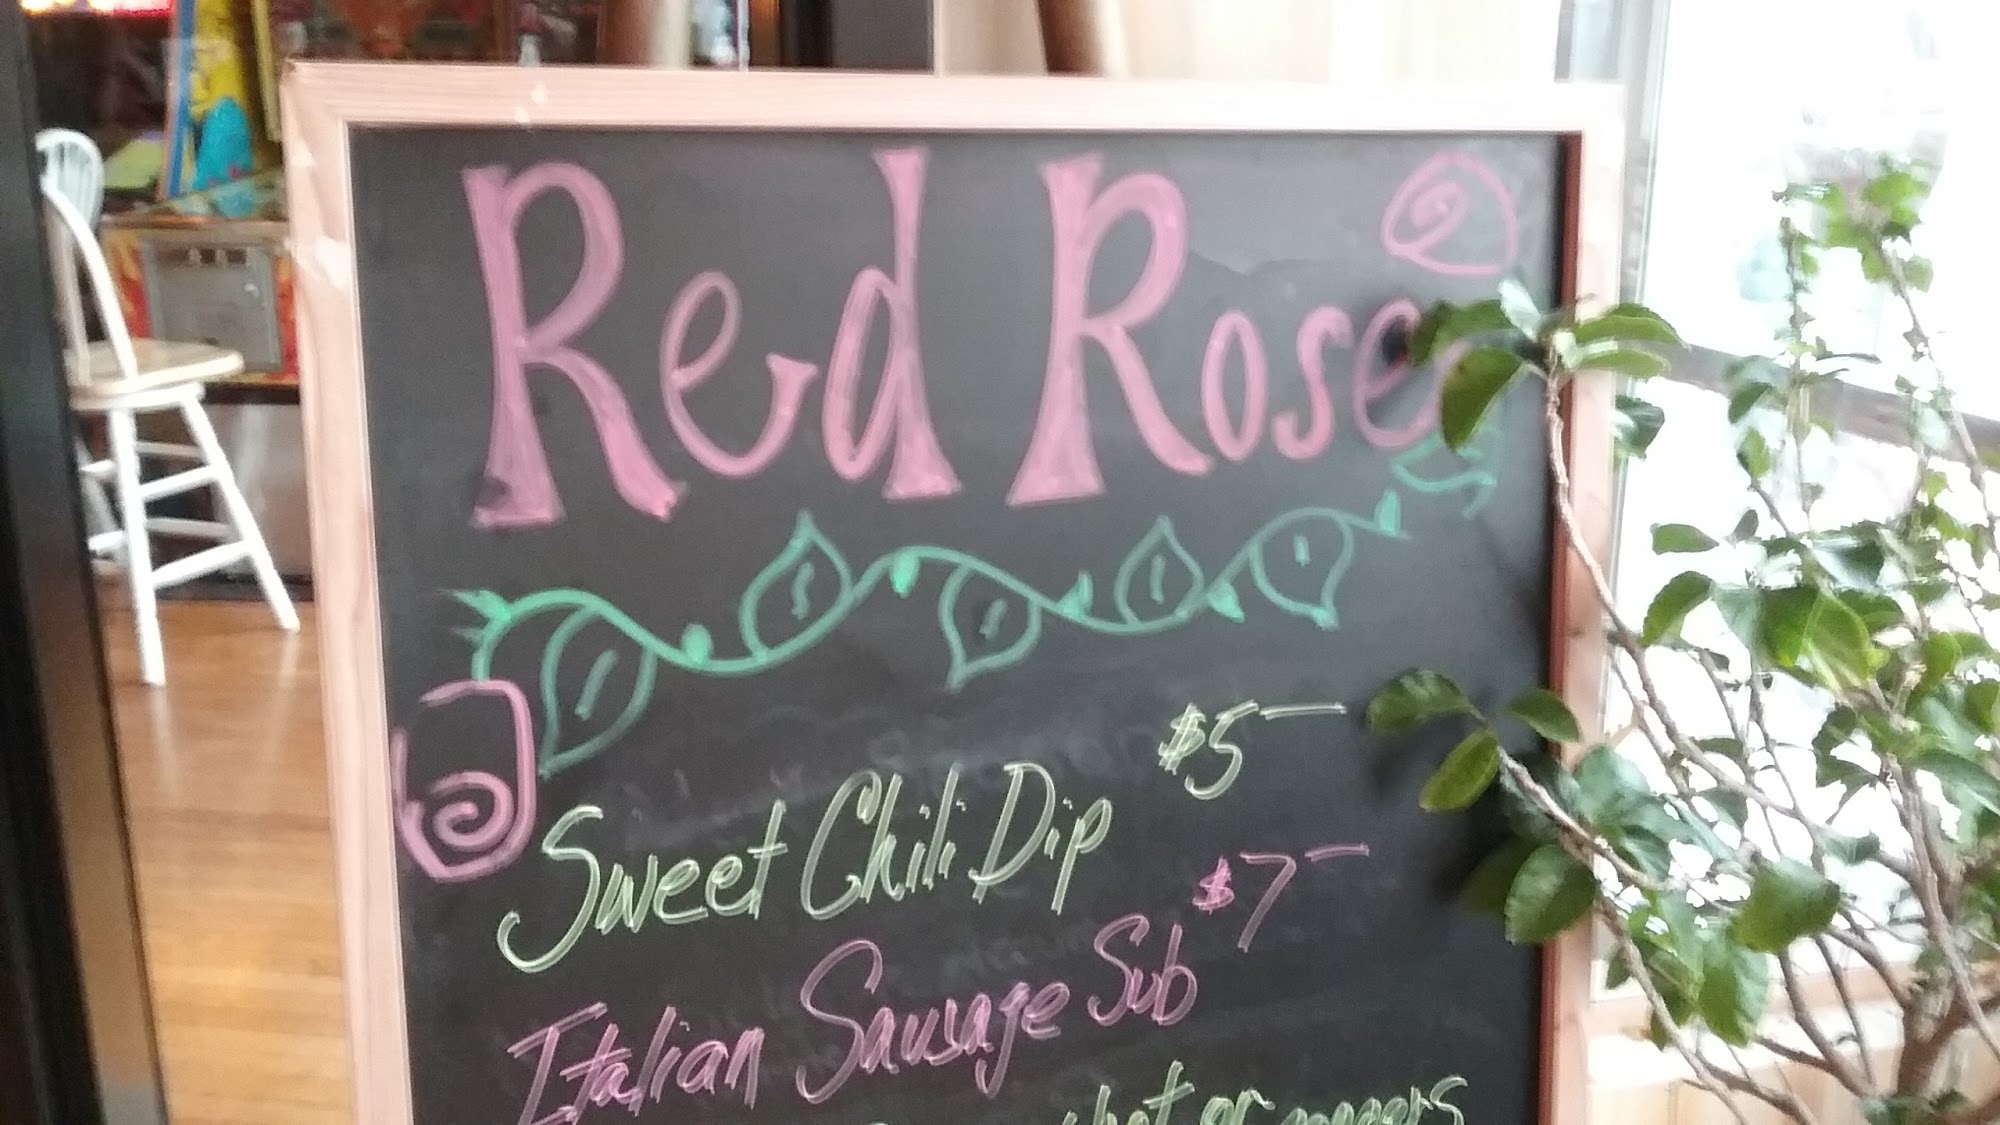 Red Rose
Sweet Chili Dip $5
Italian Sausage Sub $7
hot or